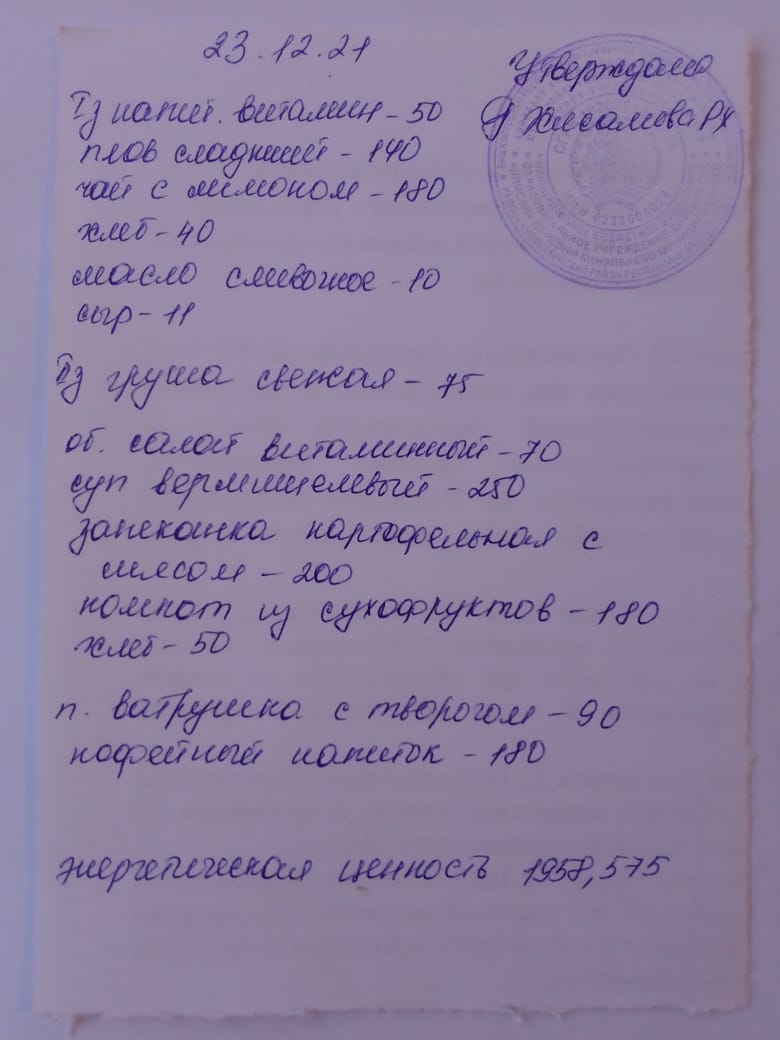 23.12.21
Утверждаю
Хисамова РХ
Iз напит. витамин - 50
плов сладкий - 140
чай с лимоном - 180
хлеб - 40
масло сливочное - 10
сыр - 11
IIз груша свежая - 75
об. салат витаминный - 70
суп вермишелевый - 250
запеканка картофельная с
мясом - 200
компот из сухофруктов - 180
хлеб - 50
п. ватрушка с творогом - 90
кофейный напиток - 180
энергетическая ценность 1958,575